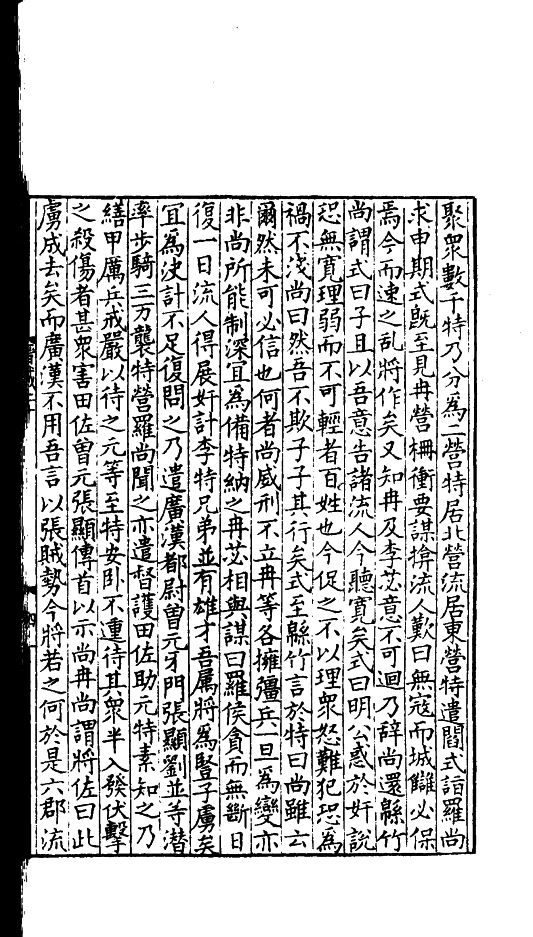 聚衆數千特乃分為二營特居北營流居東營特遣閻式詣羅尚
求申期式旣至見冉營柵衝要謀揜流人歎曰無寇而城讎必保
焉今而速之亂將作矣又知冉及李苾意不可迴乃辭尚還緜竹
尚謂式曰子且以吾意告諸流人今聽寬矣式曰明公惑於奸說
恐無寬理弱而不可輕者百姓也今促之不以理衆怒難犯恐為
禍不淺尚曰然吾不欺子子其行矣式至緜竹言於特曰尚雖云
爾然未可必信也何者尚威刑不立冉等各擁彊兵一旦為變亦
非尚所能制深宜為備特納之冉苾相與謀曰羅侯貪而無斷日
復一日流人得展奸計李特兄弟並有雄才吾屬將為豎子虜矣
宜為決計不足復問之乃遣廣漢都尉曾元牙門張顯劉並等潛
率步騎三万襲特營羅尚聞之亦遣督護田佐助元特素知之乃
繕甲厲兵戒嚴以待之元等至特安卧不動待其衆半入發伏擊
之殺傷者甚衆害田佐曾元張顯傳首以示尚冉尚謂將佐曰此
虜成去矣而廣漢不用吾言以張賊勢今將若之何於是六郡流